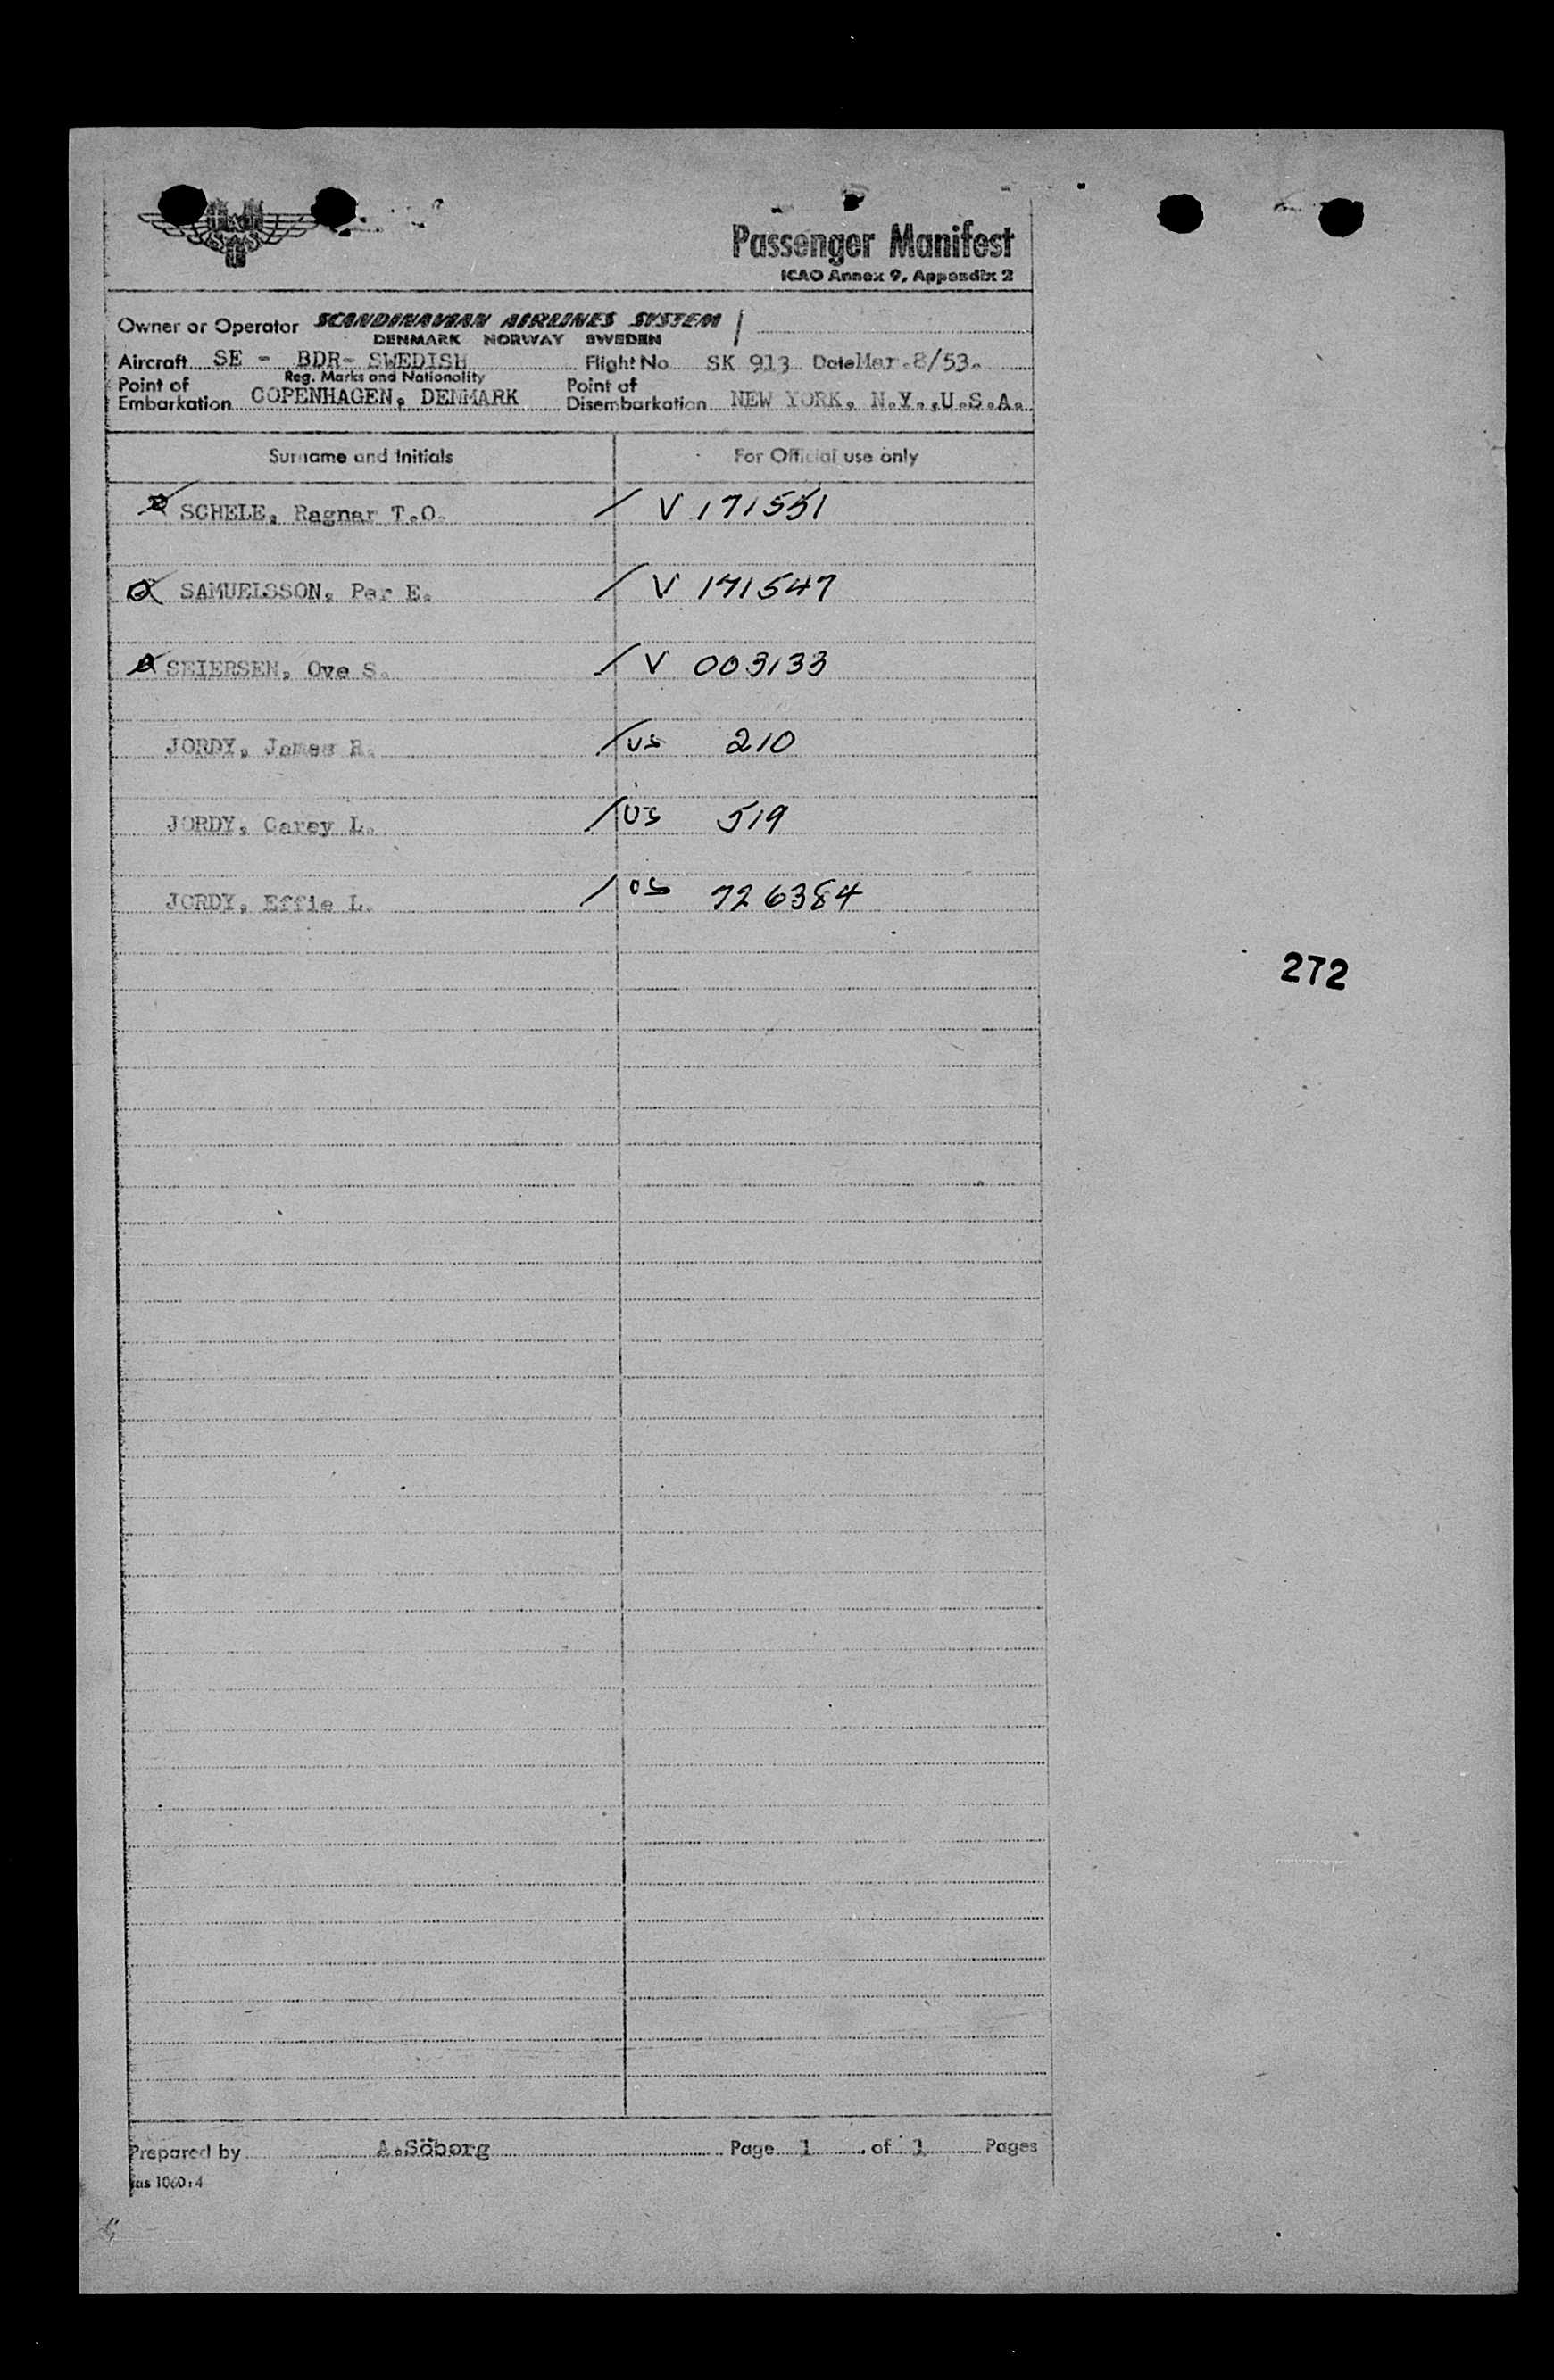 SAS
Passenger Manifest
ICAO Annex 9, Appendix 2
Owner or Operator SCANDINAVIAN AIRLINES SYSTEM /
DENMARK NORWAY SWEDEN
Aircraft SE - BDR- SWEDISH Flight No SK 913 Date Mar.8/53.
Reg. Marks and Nationality
Point of Embarkation COPENHAGEN, DENMARK Point of Disembarkation NEW YORK, N.Y.,U.S.A.
Surname and Initials For Official use only
SCHELE, Ragnar T.O. / V 171551
SAMUELSSON, Per E. / V 171547
SEIERSEN, Ove S. / V 003133
JORDY, James R. / US 210
JORDY, Carey L. / US 519
JORDY, Effie L. / US 726384
272
Prepared by A.Söborg Page 1 of 1 Pages
sas 1060:4